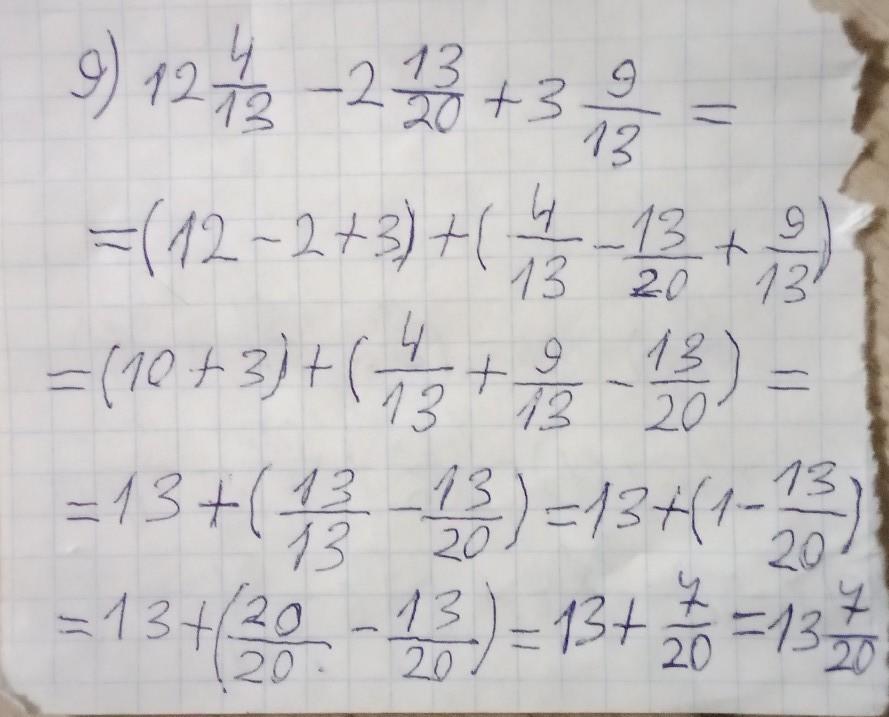 9) 12 4/13 - 2 13/20 + 3 9/13 =
= (12 - 2 + 3) + (4/13 - 13/20 + 9/13)
= (10 + 3) + (4/13 + 9/13 - 13/20) =
= 13 + (13/13 - 13/20) = 13 + (1 - 13/20)
= 13 + (20/20 - 13/20) = 13 + 7/20 = 13 7/20